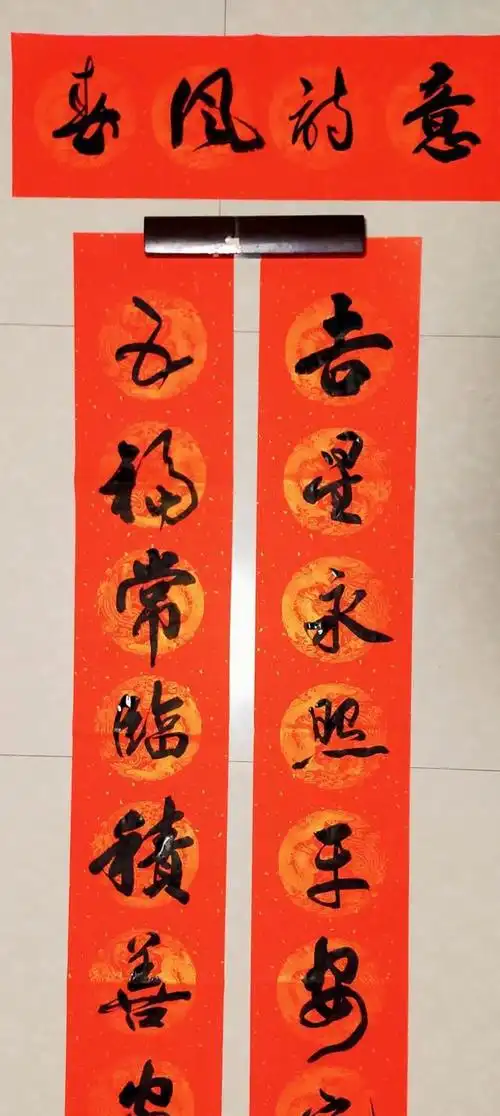 春风诗意
吉星永照平安
五福常臨積善